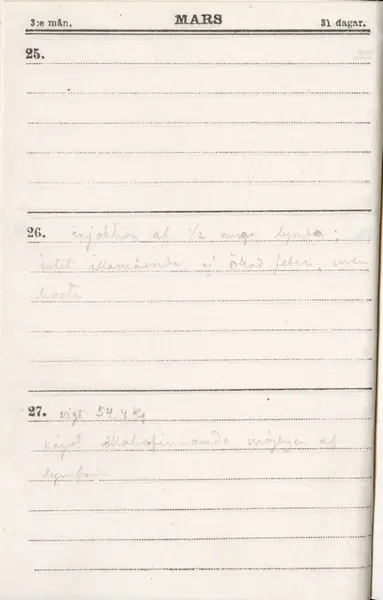 3:e mån. MARS 31 dagar.
25.
26. injektion af 1/2 lymfa ;
intet illamående ej ökad feber, men
hosta
27. vigt 54,4 kg
något illabefinnande möjligen af
lymfan